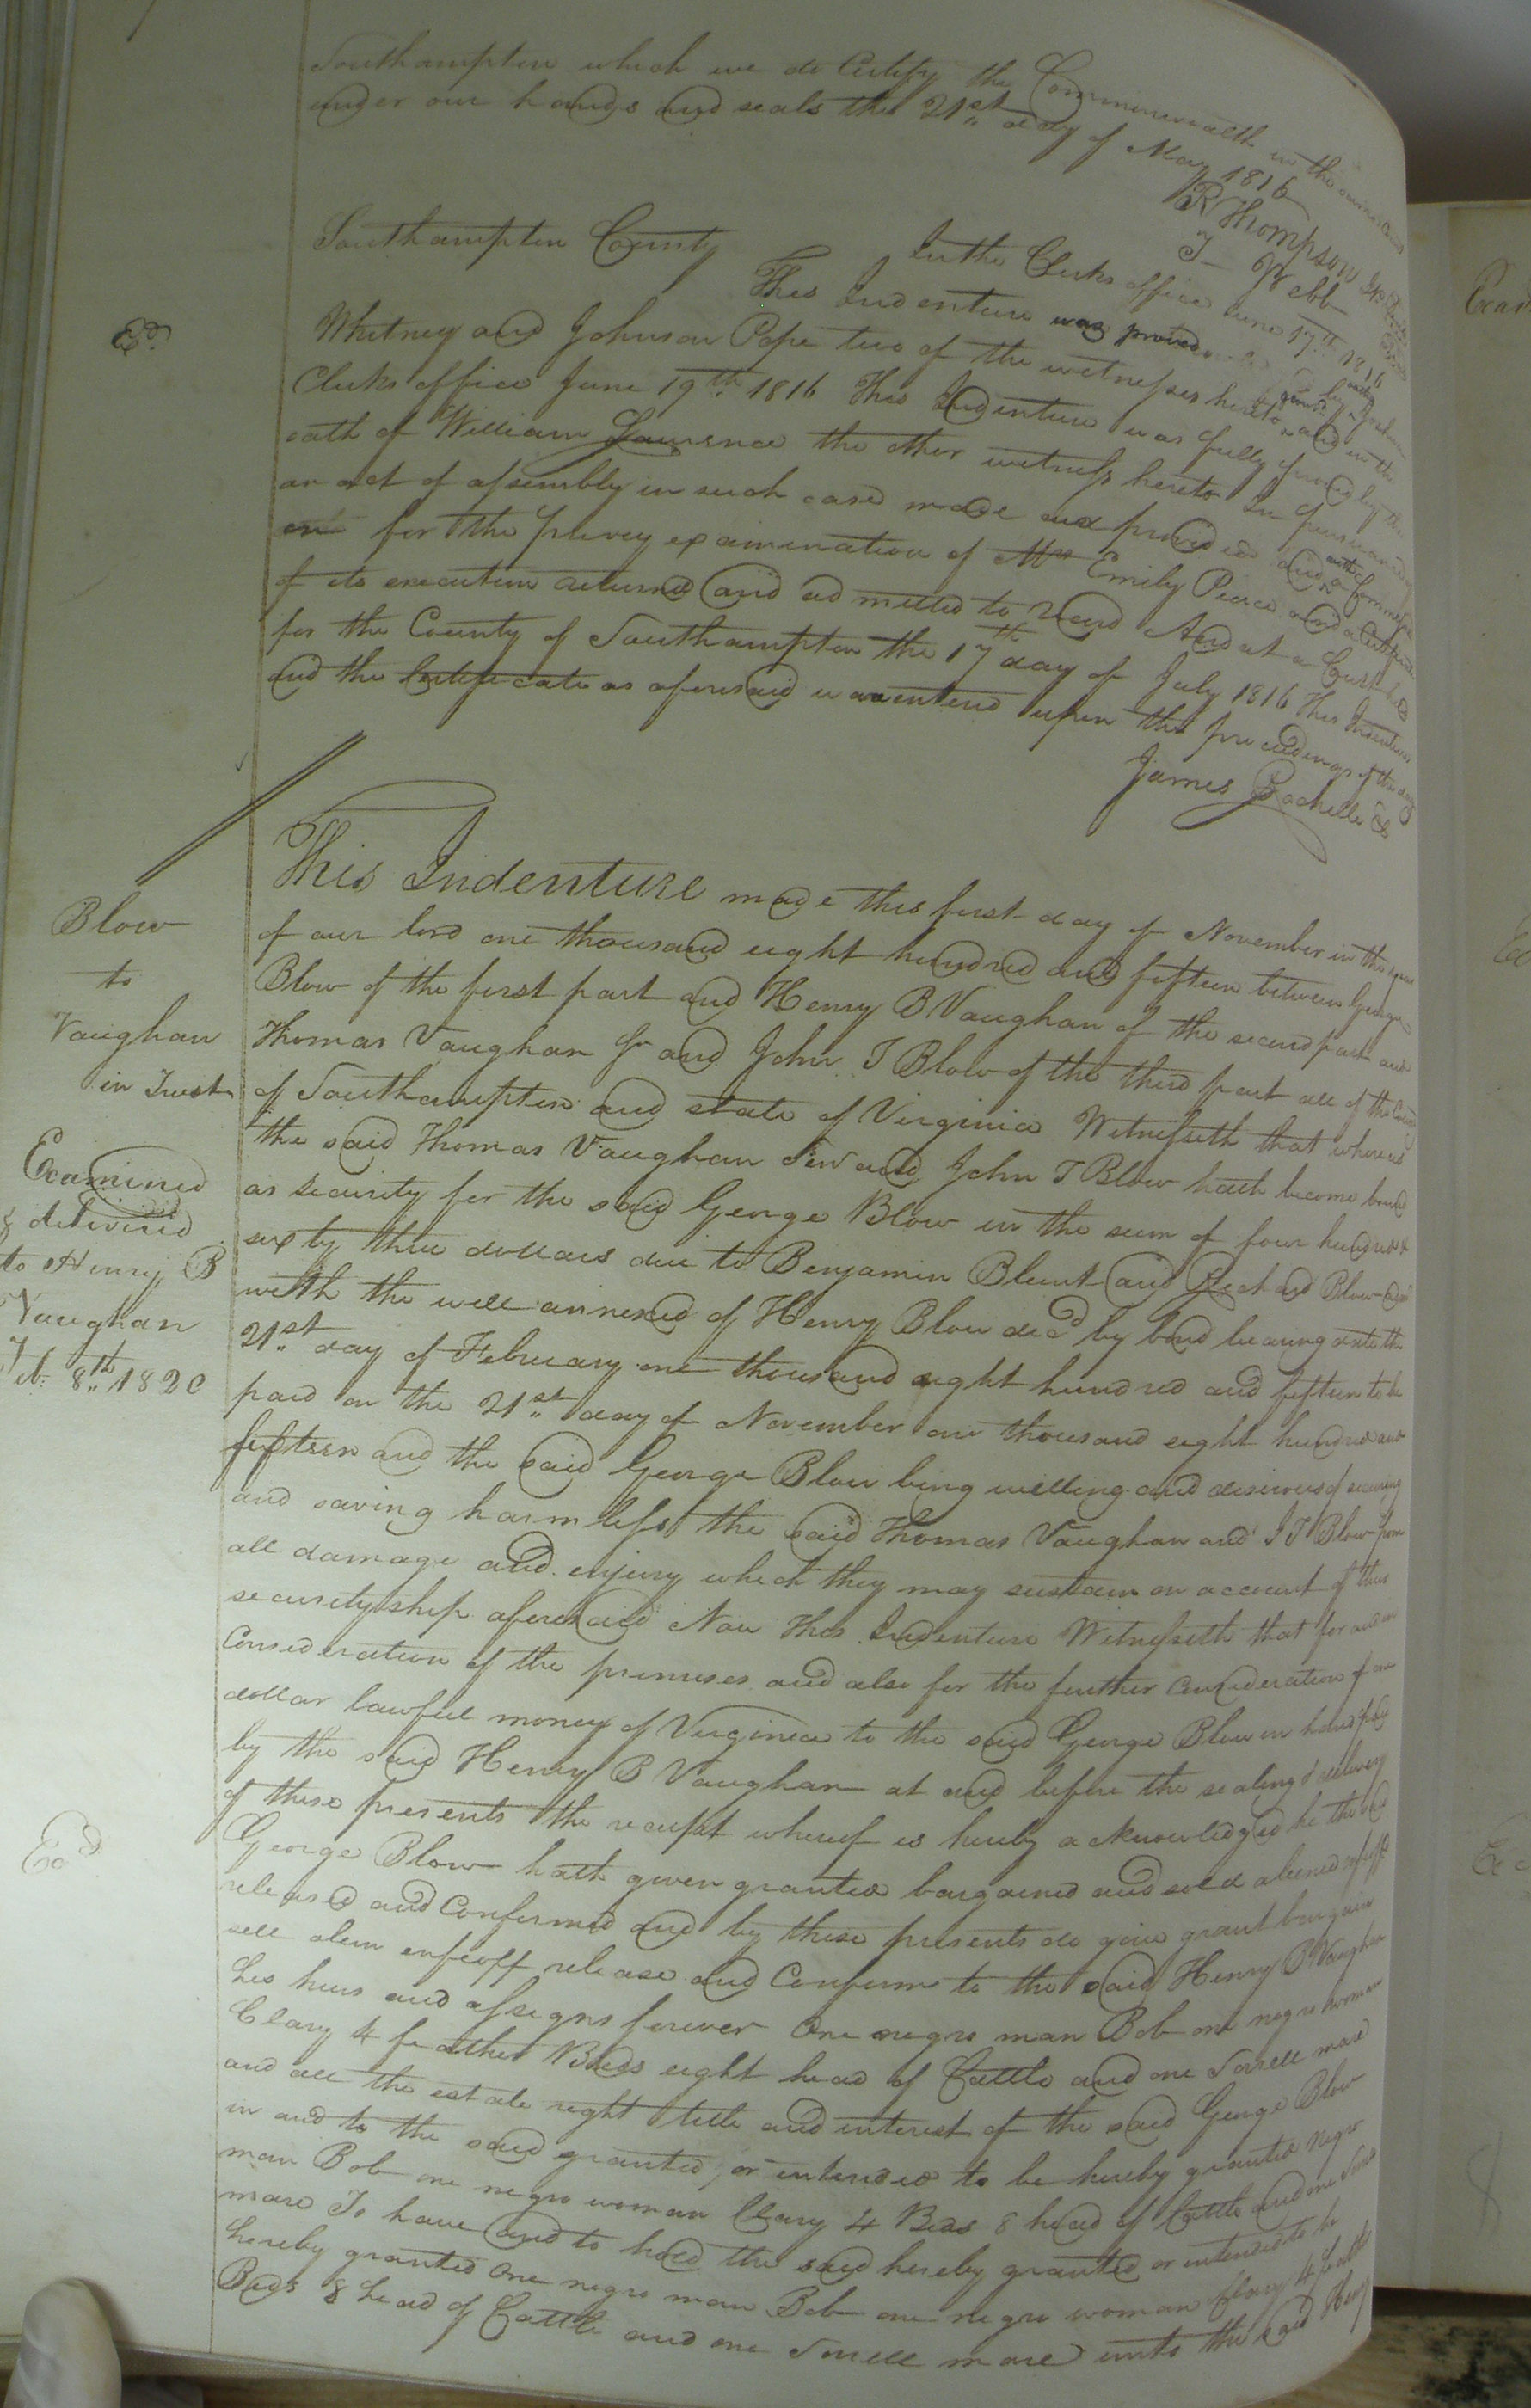 Southampton which we do Certify the Commonwealth in the
under our hands and seals this 21st day of May 1816
R Thompson
T Webb
Southampton County
In the Clerks office June 17th 1816
This Indenture was proved
Whitney and Johnson Pope two of the witnesses hereto and in the
Clerks office June 19th 1816 This Indenture was fully proved by the
oath of William Lawrence the other witness hereto In pursuance
an act of assembly in such case made and provided
for the privey examination of Mrs Emily Peirce and a Certificate
of its execution returned and admitted to record And at a Court held
for the County of Southampton the 17th day of July 1816 This Indenture
and the Certificate as aforesaid was entered upon the proceedings of the day
James Rochelle
Ed
Blow
to
Vaughan
in Trust
Examined
& delivered
to Henry B
Vaughan
Feb. 8th 1820
Exd
This Indenture made this first day of November in the year
of our lord one thousand eight hundred and fifteen between George
Blow of the first part and Henry B Vaughan of the second part and
Thomas Vaughan Sr and John T Blow of the third part all of the County
of Southampton and state of Virginia Witnesseth that whereas
the said Thomas Vaughan Senr and John T Blow hath become bound
as security for the said George Blow in the sum of four hundred &
sixty three dollars due to Benjamin Blunt and Richard Blow
with the will annexed of Henry Blow decd by bond bearing date the
21st day of February one thousand eight hundred and fifteen to be
paid on the 21st day of November one thousand eight hundred and
fifteen and the said George Blow being willing and desirous of securing
and saving harmless the said Thomas Vaughan and J T Blow from
all damage and enjury which they may sustain on account of their
securityship aforesaid Now This Indenture Witnesseth that for and in
Consideration of the premises and also for the further Consideration of one
dollar lawful money of Virginia to the said George Blow in hand paid
by the said Henry B Vaughan at and before the sealing & delivery
of these presents the receipt whereof is hereby acknowledged he the said
George Blow hath given granted bargained and sold aliened enfeoff
released and Confirmed and by these presents do give grant bargain
sell alien enfeoff release and Confirm to the said Henry B Vaughan
his heirs and assigns forever One negro man Bob one negro woman
Clary 4 feather Beds eight head of Cattle and one Sorrell mare
and all the estate right title and interest of the said George Blow
in and to the said granted, or intended to be hereby granted negro
man Bob one negro woman Clary 4 Beds 8 head of Cattle and one Sorrell
mare To have and to hold the said hereby granted or intended to be
hereby granted One negro man Bob one negro woman Clary 4 feather
Beds 8 head of Cattle and one Sorrell mare unto the said Henry